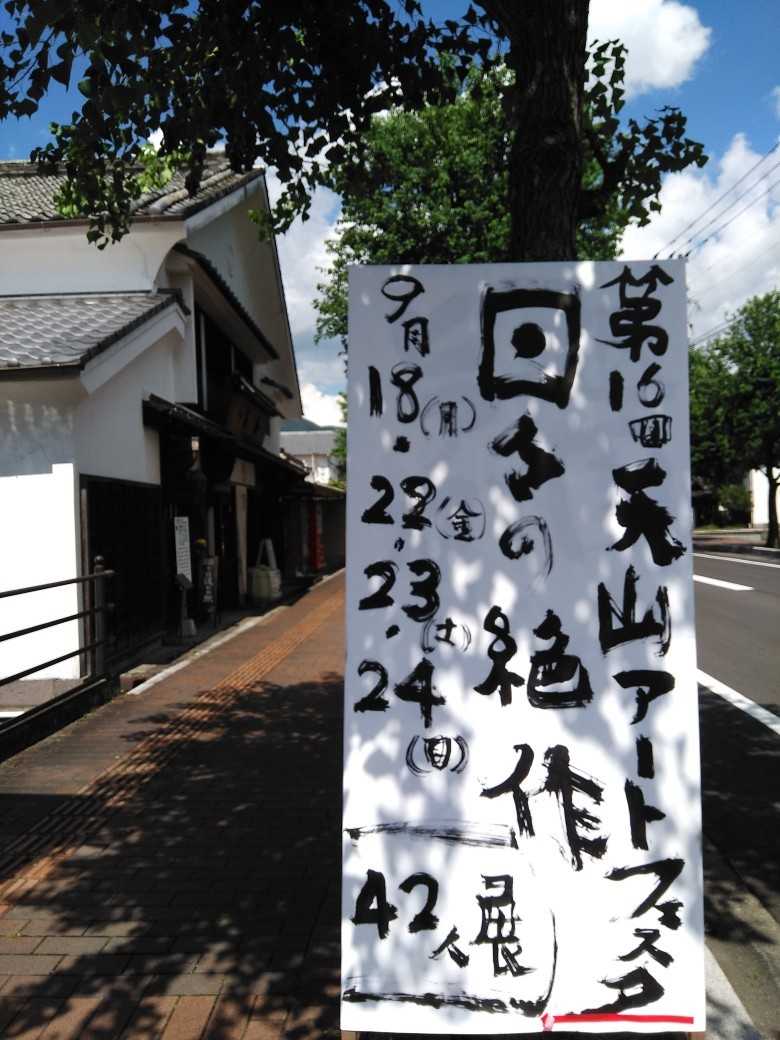 第16回天山アートフェスタ
日々の絶作
9月
18(月)・
22(金)・
23(土)・
24(日)
42人展